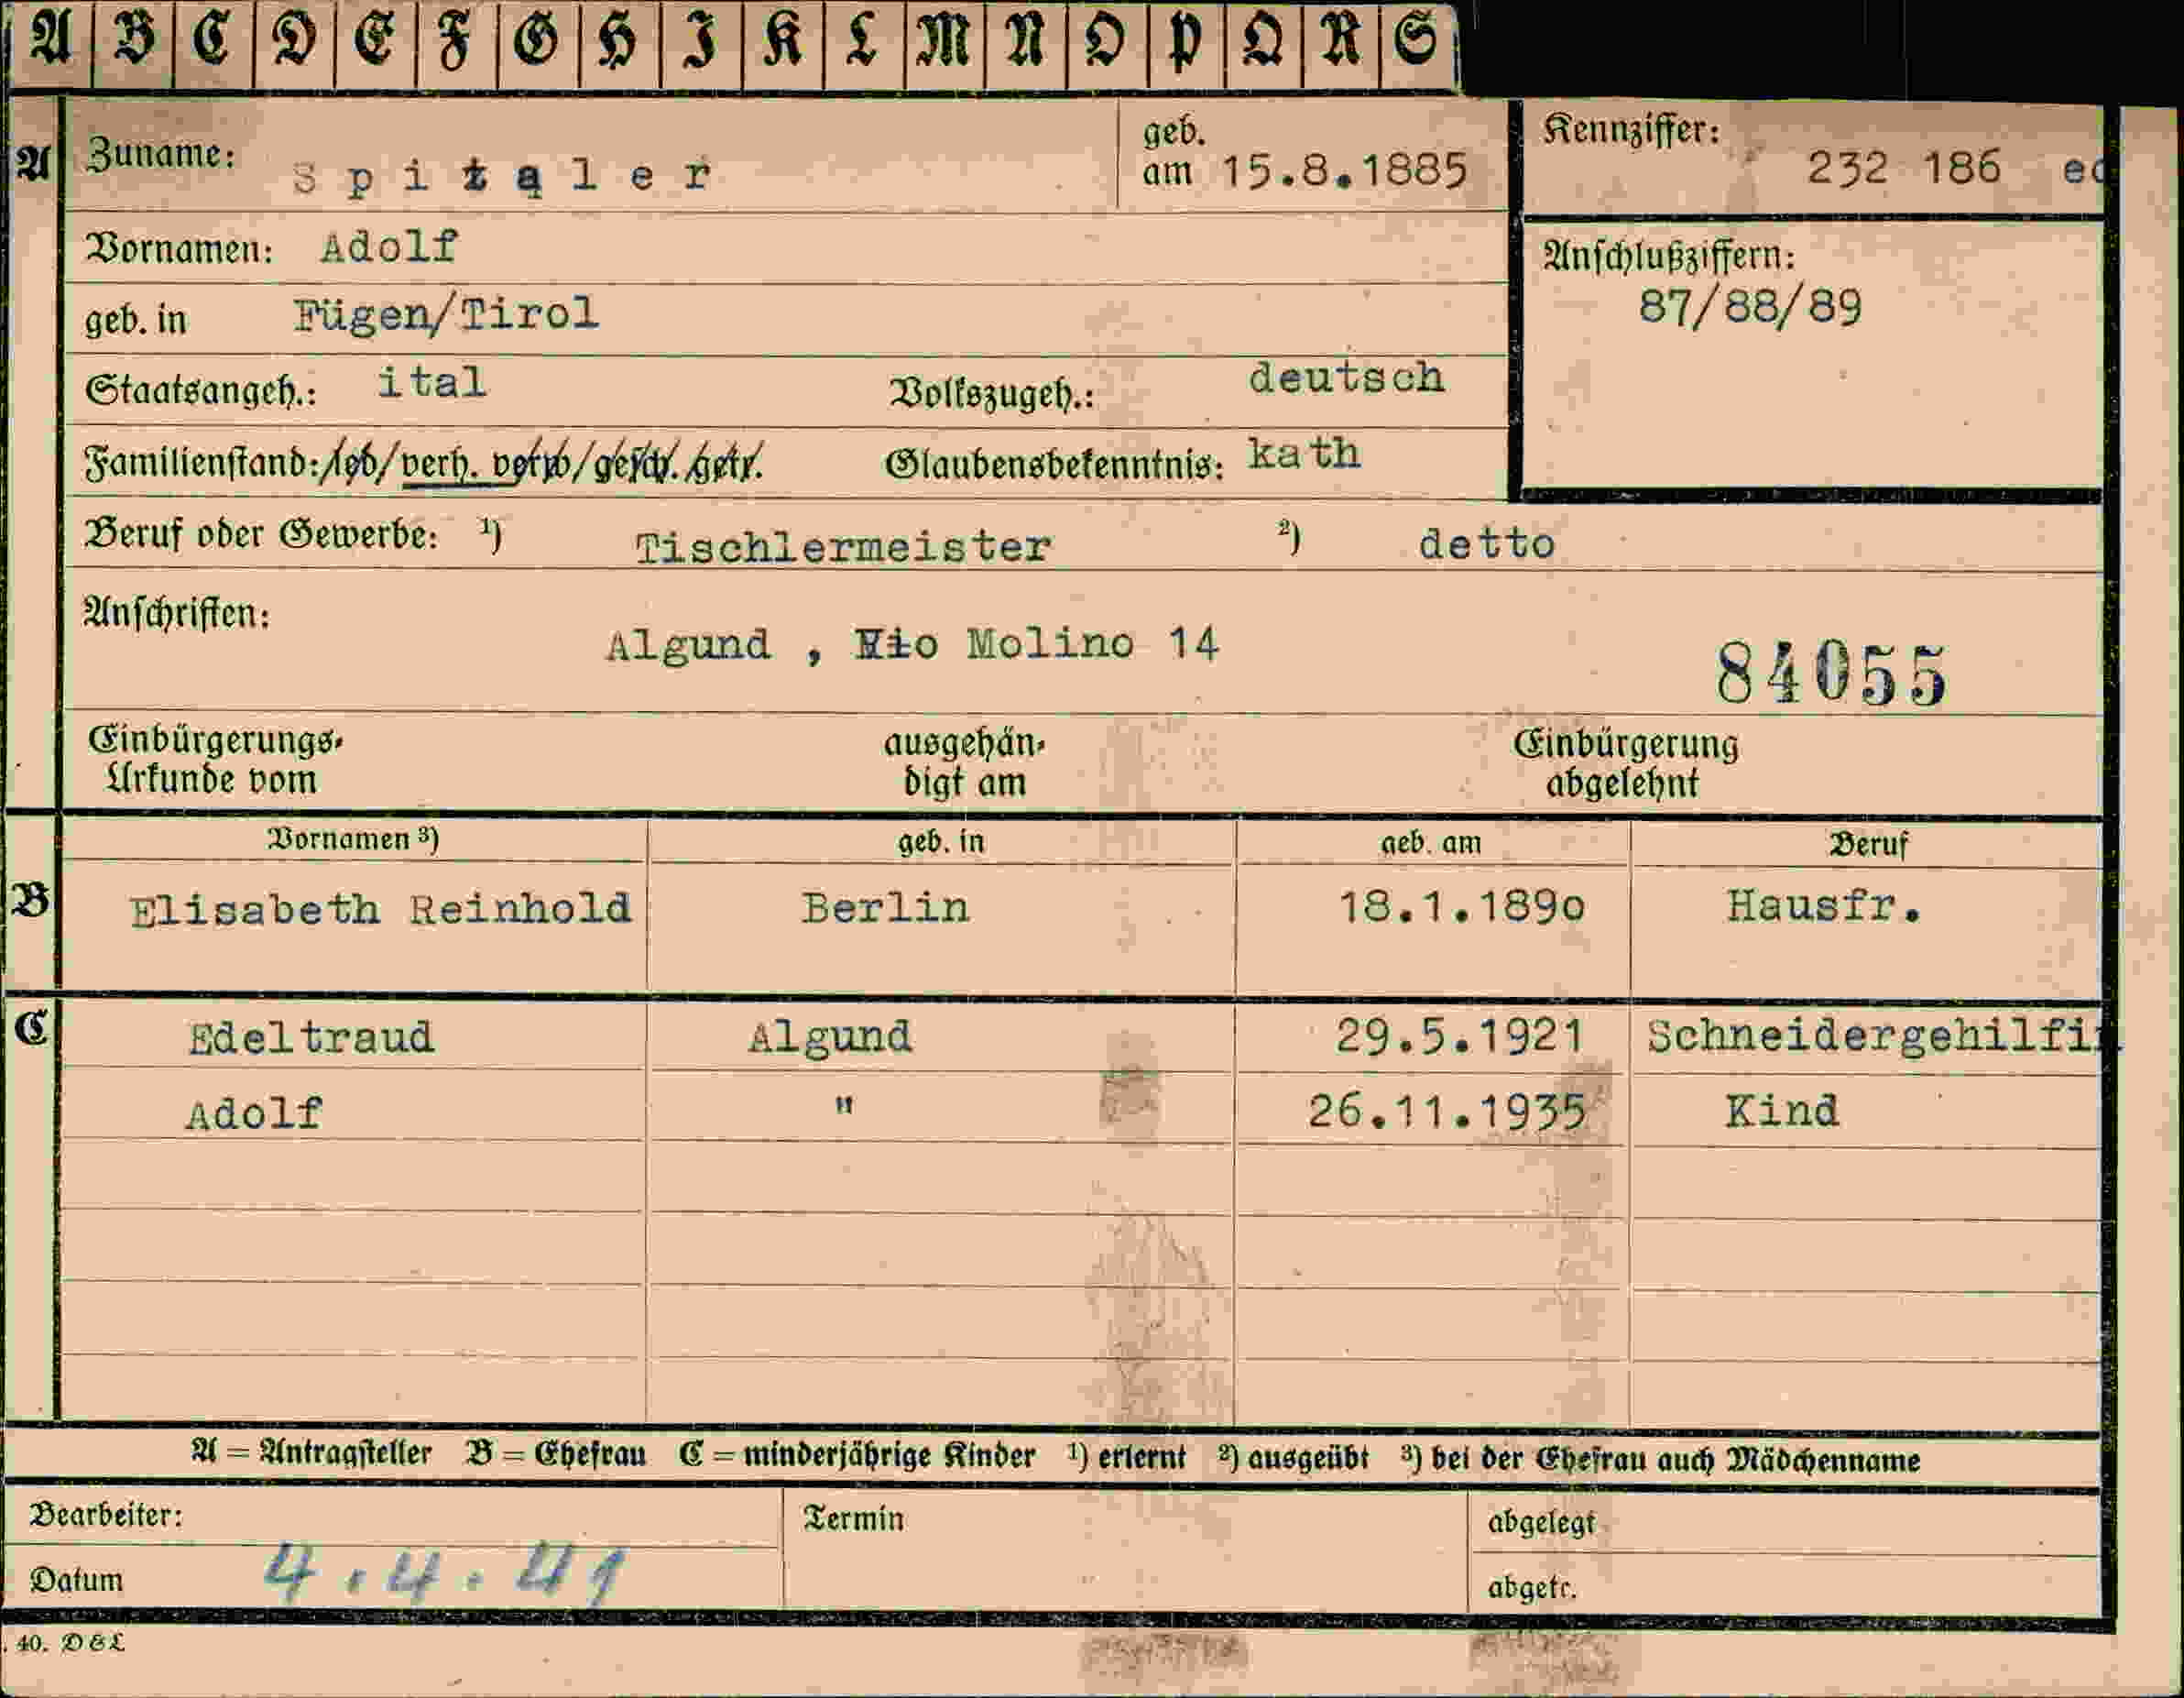 A B C D E F G H I K L M N O P Q R S
A Zuname: Spitaler geb. am 15.8.1885 Kennziffer: 232 186
Vornamen: Adolf Anschlußziffern:
87/88/89
geb. in Fügen/Tirol
Staatsangeh.: ital Volkszugeh.: deutsch
Familienstand: led/verh. verw/gesch. getr. Glaubensbekenntnis: kath
Beruf oder Gewerbe: 1) Tischlermeister 2) detto
Anschriften:
Algund , Molino 14 84055
Einbürgerungs- ausgehän- Einbürgerung
Urkunde vom digt am abgelehnt
Vornamen 3) geb. in geb. am Beruf
B Elisabeth Reinhold Berlin 18.1.1890 Hausfr.
C Edeltraud Algund 29.5.1921 Schneidergehilfin
Adolf " 26.11.1935 Kind
A = Antragsteller B = Ehefrau C = minderjährige Kinder 1) erlernt 2) ausgeübt 3) bei der Ehefrau auch Mädchenname
Bearbeiter: Termin abgelegt
Datum 4.4.41 abgetr.
. 40. D & L